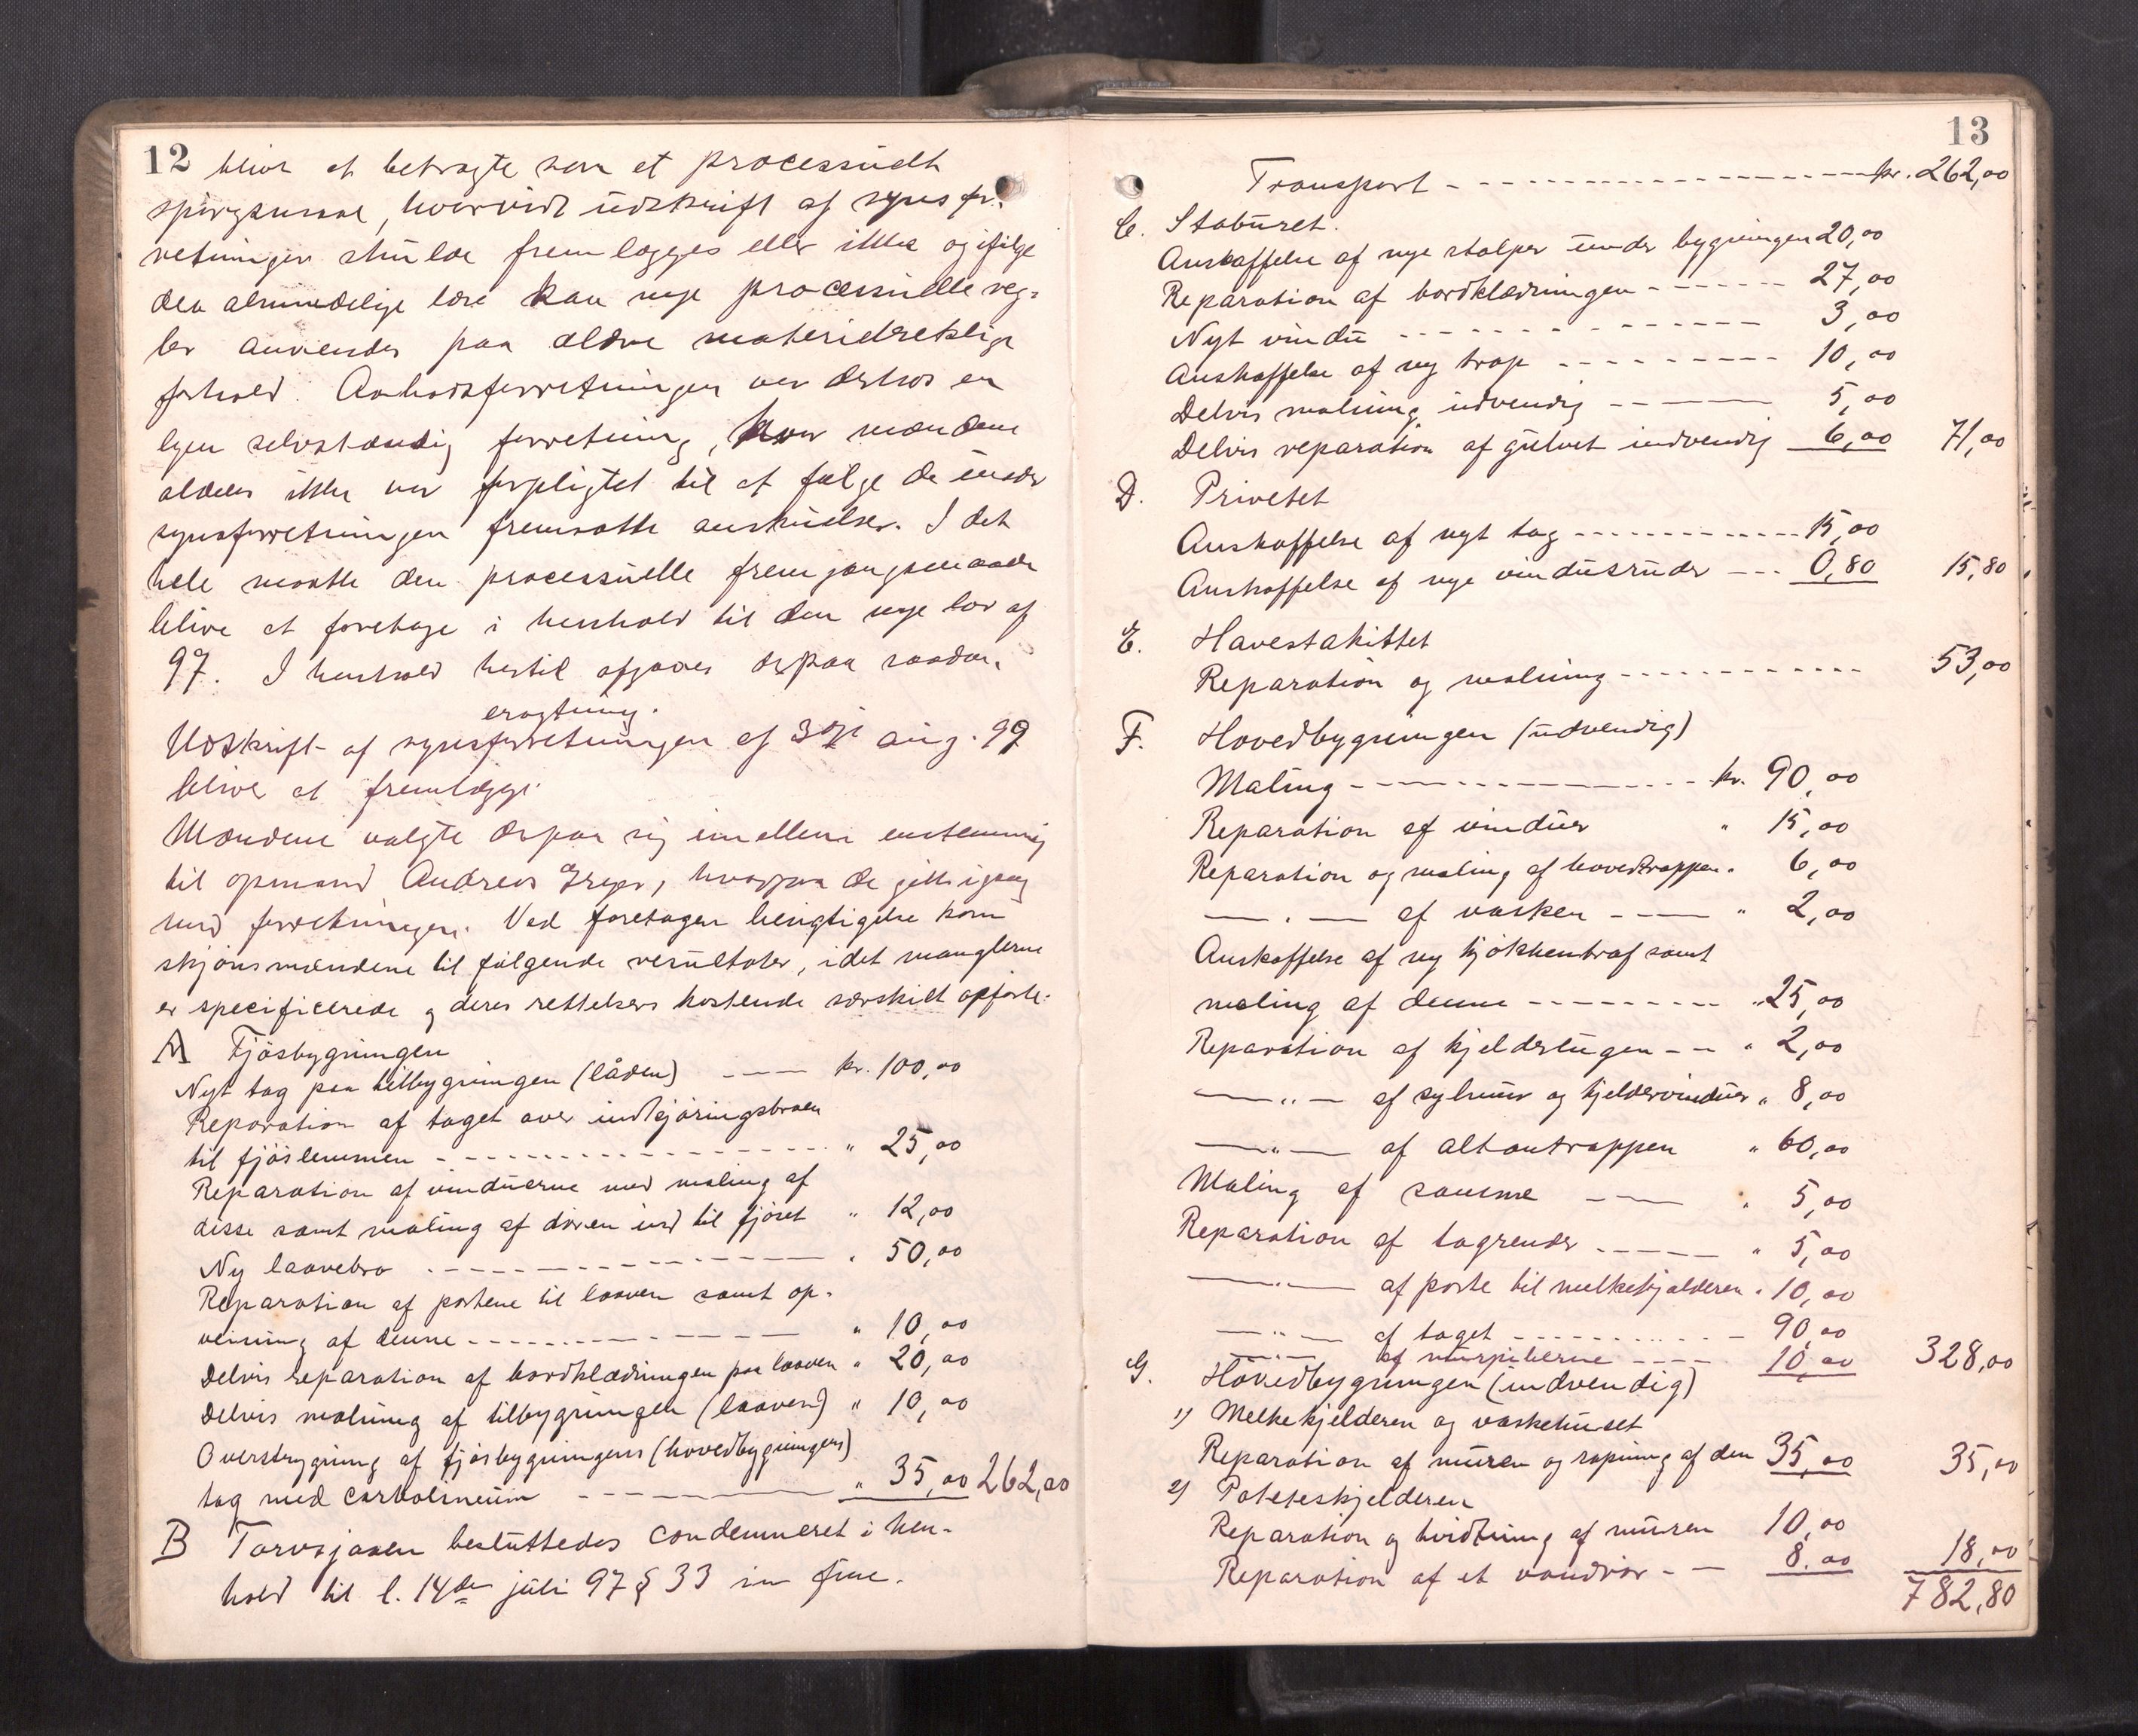 12 bliver at betragte som et processuelt
spørgsmaal, hvorvidt udskrift af synsfor-
retningen skulde fremlægges eller ikke og ifølge
den almindelige lære kan nye processuelle reg-
ler anvendes paa ældre materielretslige
forhold. Aabodsforretningen var derhos en
egen selvstændig forretning, hvor mændene
aldeles ikke var forpligtet til at følge de under
synsforretningen fremsatte anskuelser. I det
hele maatte den processuelle fremgangsmaade
blive at foretage i henhold til den nye lov af
97. I henhold hertil afgaves derpaa saadan
eragtning.
Udskrift af synsforretningen af aug. 99
bliver at fremlægge.
Mændene valgte derpaa sig imellem enstemmig
til opmand Andreas, hvorpaa de gik igang
med forretningen. Ved foretagen besigtigelse kom
skjønsmændene til følgende resultater, idet manglerne
er specificerede og deres rettelsers kostende særskilt opført:
A Fjøsbygningen
Nyt tag paa tilbygningen (låden) ---- kr. 100,00
Reparation af taget over indkjøringsbroen
til fjøslemmen - - - - - - - " 25,00
Reparation af vinduerne med maling af
disse samt maling af døren ind til fjøset " 12,00
Ny laavebro - - - - - - - " 50,00
Reparation af portene til laaven samt op-
veining af denne - - - - - - - " 10,00
Delvis reparation af bordklædningen paa laaven " 20,00
Delvis malning af tilbygningen (laaven) " 10,00
Overstrygning af fjøsbygningens (hovedbygningens)
tag med carbolineum - - - - " 35,00 262,00
B Torvsjaaen besluttedes condemneret i hen-
hold til l. 14de juli 97 § 33 in fine.
13
Transport - - - - - - - kr. 262,00
C. Staburet.
Anskaffelse af nye stolper under bygningen 20,00
Reparation af bordklædningen - - - - 27,00
Nyt vindu - - - - - - - 3,00
Anskaffelse af ny trap - - - - - - 10,00
Delvis malning udvendig - - - - 5,00
Delvis reparation af gulvet indvendig 6,00 71,00
D. Privetet
Anskaffelse af nyt tag - - - - - - 15,00
Anskaffelse af nye vindusruder - - - 0,80 15,80
E. Havestakittet
Reparation og malning - - - - - - 53,00
F. Hovedbygningen (udvendig)
Maling - - - - - - - kr. 90,00
Reparation af vinduer " 15,00
Reparation og maling af hovedtrappen " 6,00
— " — af vasken - - - " 2,00
Anskaffelse af ny kjøkkentrap samt
maling af denne - - - - - - " 25,00
Reparation af kjelderlugen - - " 2,00
— " — af sylmur og kjeldervinduer " 8,00
— " — af altantrappen " 60,00
Maling af samme - - - " 5,00
Reparation af tagrender - - - - " 5,00
— " — af porte til melkekjelderen " 10,00
— " — af taget - - - - - - 90,00
— " — af murpiberne - - - - 10,00 328,00
G. Hovedbygningen (indvendig)
1) Melkekjelderen og vaskehuset
Reparation af muren og rapning af den 35,00 35,00
2) Poteteskjelderen
Reparation og hvidtning af muren 10,00
Reparation af et vandrør - - 8.00 18,00
782,80